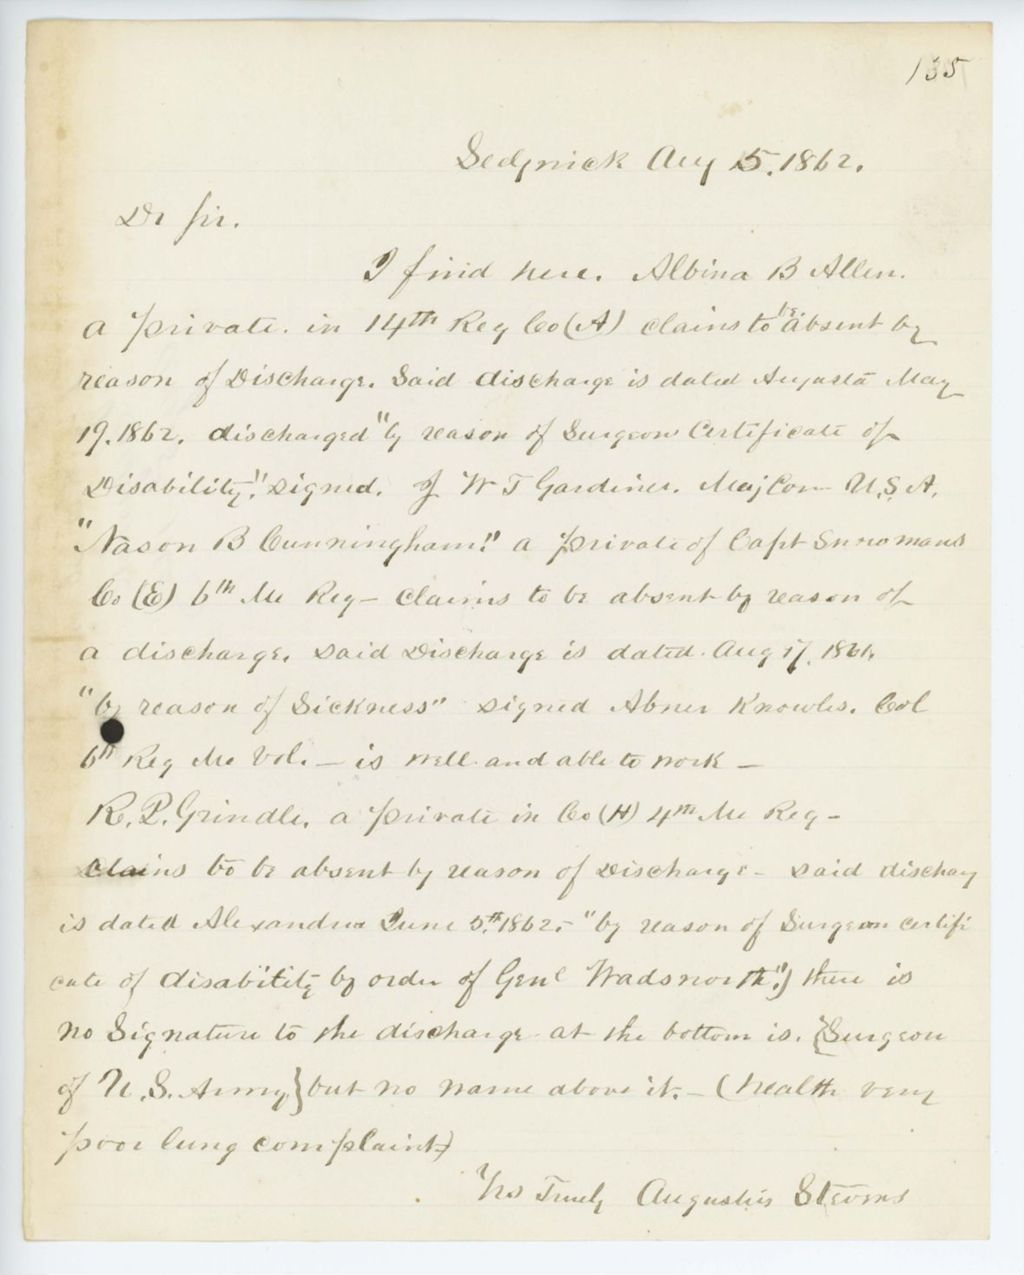 135
Sedgwick Aug 5. 1862.
Dr Sir.
I find here. Albina B Allen.
a private. in 14th Reg Co (A) claims to be absent by
reason of Discharge. Said discharge is dated Augusta May
19. 1862. discharged "by reason of Surgeon Certificate of
Disability". signed. J W T Gardiner. Maj Com U.S.A.
"Nason B Cunningham." a private of Capt Snowmans
Co (E) 6th Me Reg - claims to be absent by reason of
a discharge. said Discharge is dated. Aug 17, 1861.
"by reason of Sickness" signed Abner Knowles. Col
6th Reg Me Vol. - is well and able to work -
R. P. Grindle. a private in Co (H) 4th Me Reg -
claims to be absent by reason of Discharge - said discharg
is dated Alexandria June 5th. 1862. - "by reason of Surgeon certifi
cate of disability by order of Genl Wadsworth".) there is
no Signature to the discharge at the bottom is. {Surgeon
of U.S. Army} but no name above it. - (health very
poor lung complaint)
Yrs Truely Augustus Stevens